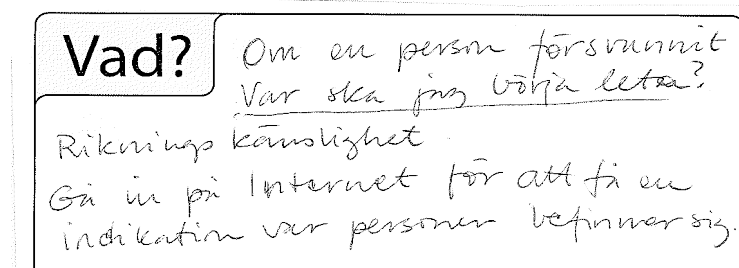 Vad?
Om en person försvunnit
Var ska jag börja leta?
Riknings känslighet.
Gå in på Internet för att få en
indikation var personen befinner sig.